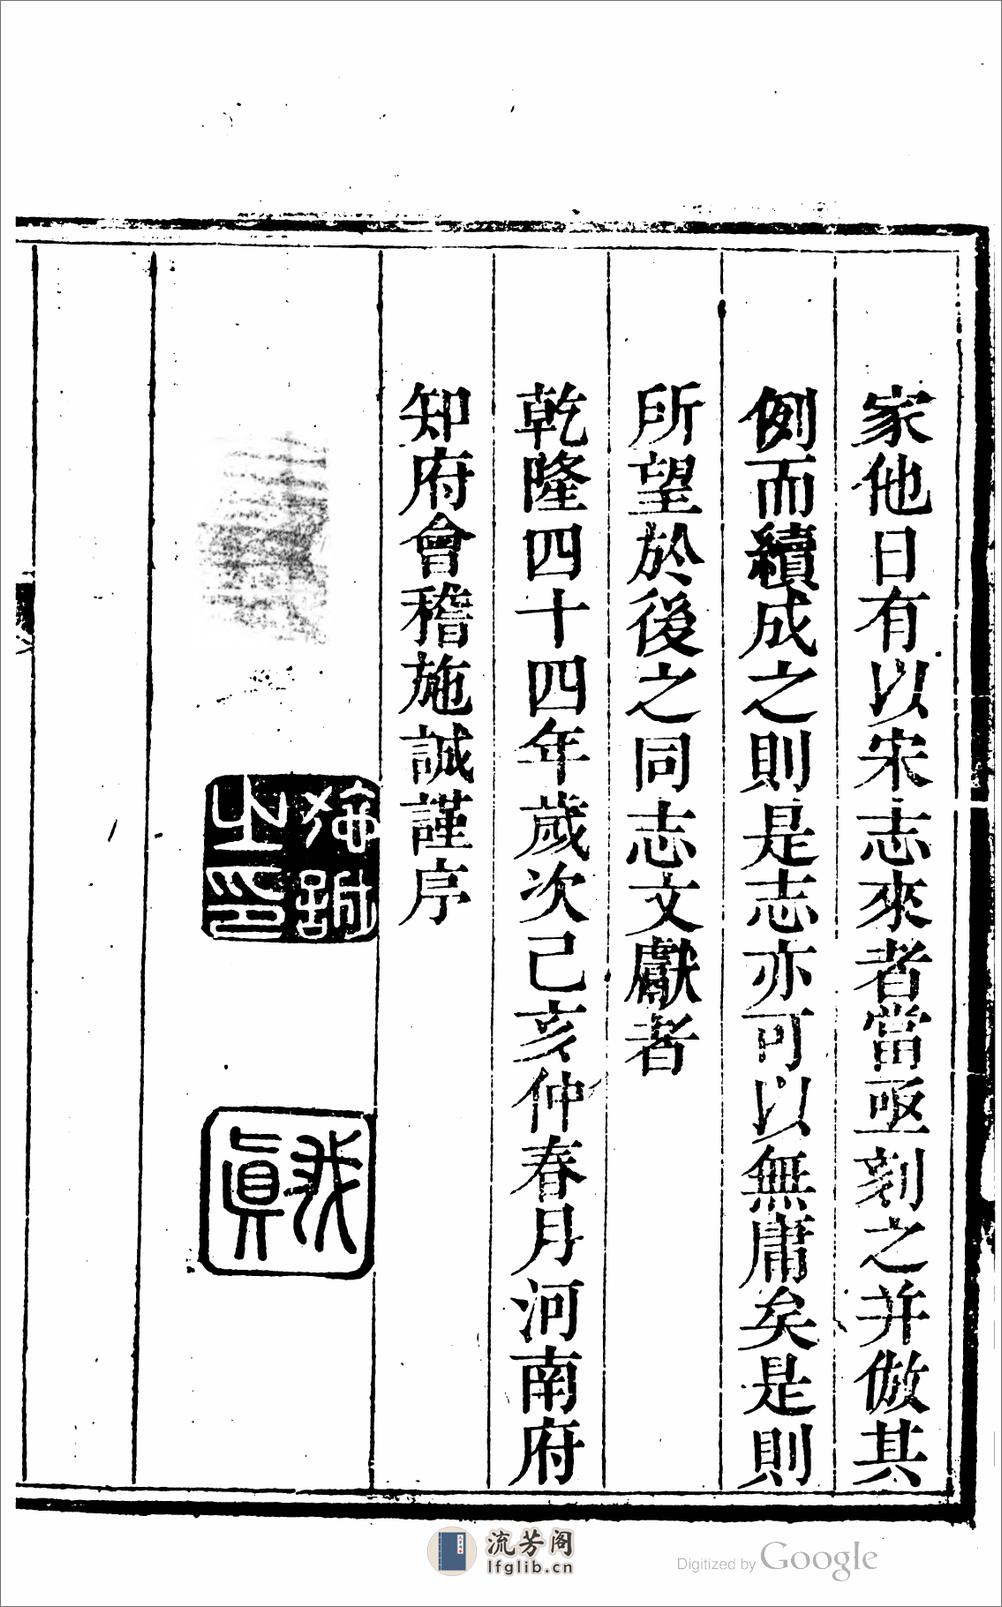 家他日有以宋志來者當亟刻之并倣其
例而續成之則是志亦可以無庸矣是則
所望於後之同志文獻者
乾隆四十四年歲次己亥仲春月河南府
知府會稽施誠謹序
施誠之印
我真
流芳阁
lfglib.cn
Digitized by Google